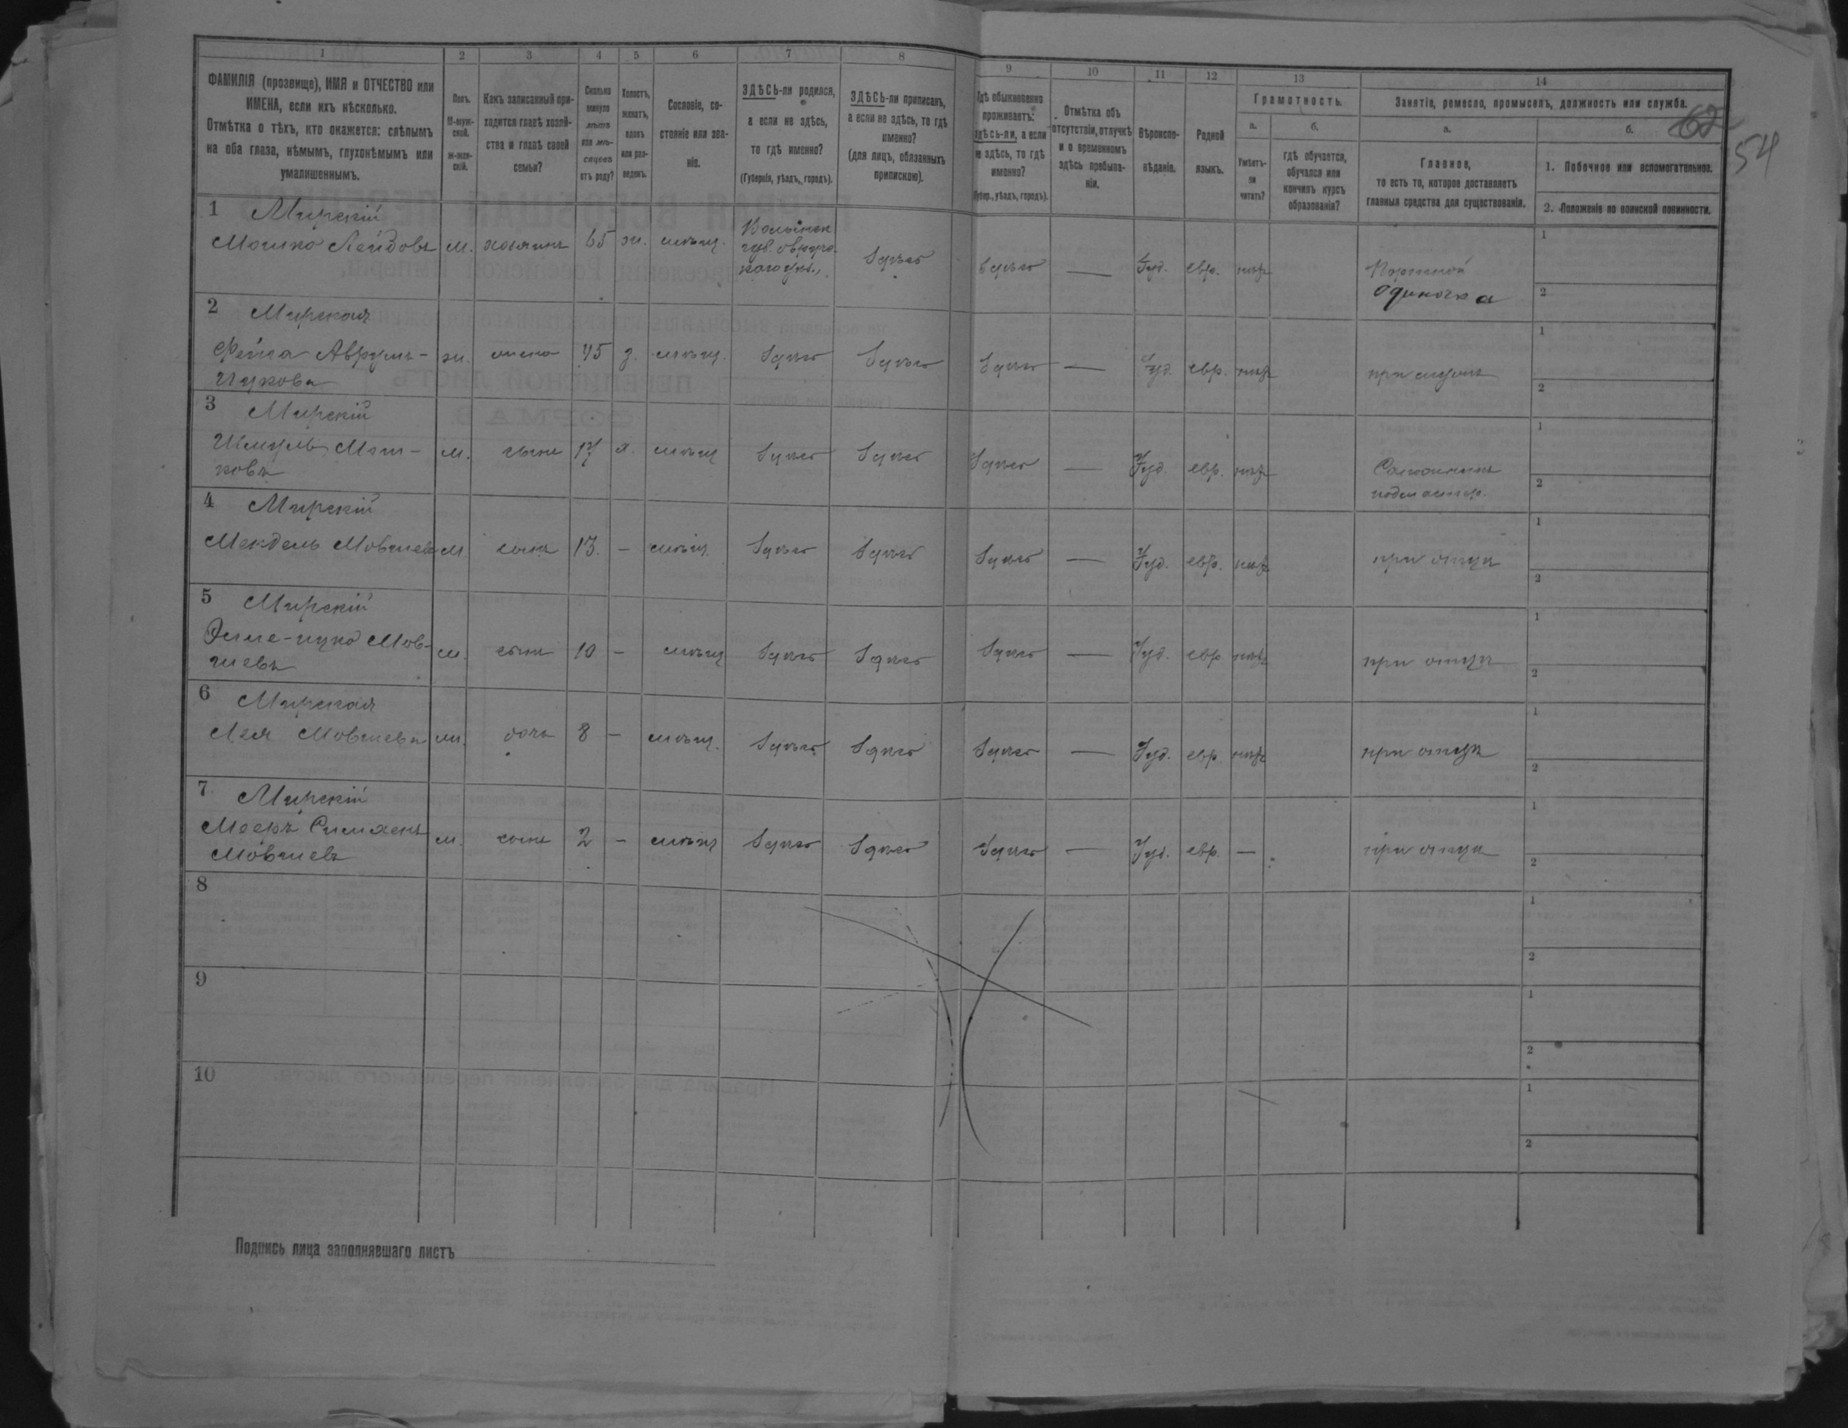 1 2 3 4 5 6 7 8 9 10 11 12 13 14
ФАМИЛІЯ (прозвище), ИМЯ и ОТЧЕСТВО или
ИМЕНА, если ихъ нѣсколько.
Отмѣтка о тѣхъ, кто окажется: слѣпымъ
на оба глаза, нѣмымъ, глухонѣмымъ или
умалишеннымъ.
Полъ.
М-муж-
ской.
Ж-жен-
скій.
Какъ записанный при-
ходится главѣ хозяй-
ства и главѣ своей
семьи?
Сколько
минуло
лѣтъ
или мѣ-
сяцевъ
отъ роду?
Холостъ,
женатъ,
вдовъ
или раз-
веденъ.
Сословіе, со-
стояніе или зва-
ніе.
ЗДѢСЬ-ли родился,
а если не здѣсь,
то гдѣ именно?
(Губернія, уѣздъ, городъ).
ЗДѢСЬ-ли приписанъ,
а если не здѣсь, то гдѣ
именно?
(для лицъ, обязанныхъ
припискою).
Гдѣ обыкновенно
проживаетъ:
здѣсь-ли, а если
не здѣсь, то гдѣ
именно?
(Губер., уѣздъ, городъ).
Отмѣтка объ
отсутствіи, отлучкѣ
и о временномъ
здѣсь пребыва-
ніи.
Вѣроиспо-
вѣданіе.
Родной
языкъ.
Грамотность.
а.
Умѣетъ-
ли
читать?
б.
гдѣ обучается,
обучался или
кончилъ курсъ
образованія?
Занятіе, ремесло, промыселъ, должность или служба.
а.
Главное,
то есть то, которое доставляетъ
главныя средства для существованія.
б.
1. Побочное или вспомогательное.
2. Положеніе по воинской повинности.
62
54
1 Мирскій
Мошко Лейбовъ м. хозяинъ 65 ж. мѣщ. здѣсь здѣсь — Іуд. евр. нѣтъ
Портной
одиночка
2 Мирская
Фейга Аврумъ-
Ицкова ж. жена 45 з. мѣщ. здѣсь здѣсь здѣсь — Іуд. евр. нѣтъ при мужѣ
3 Мирскій
Шмуль Мош-
ковъ м. сынъ 17 х. мѣщ здѣсь здѣсь здѣсь — Іуд. евр. нѣтъ
4 Мирскій
Мендель Мовшевъ м сынъ 13. — мѣщ. здѣсь здѣсь здѣсь — Іуд. евр. нѣтъ при отцѣ
5 Мирскій
Мов-
шевъ м. сынъ 10 — мѣщ здѣсь здѣсь здѣсь — Іуд. евр нѣтъ при отцѣ
6 Мирская
Лея Мовшева ж. дочь 8 — мѣщ. здѣсь здѣсь здѣсь — Іуд. евр. нѣтъ при отцѣ
7 Мирскій
Мовшевъ м. сынъ 2 — мѣщ здѣсь здѣсь здѣсь — Іуд. евр. — при отцѣ
8
9
10
Подпись лица заполнявшаго листъ